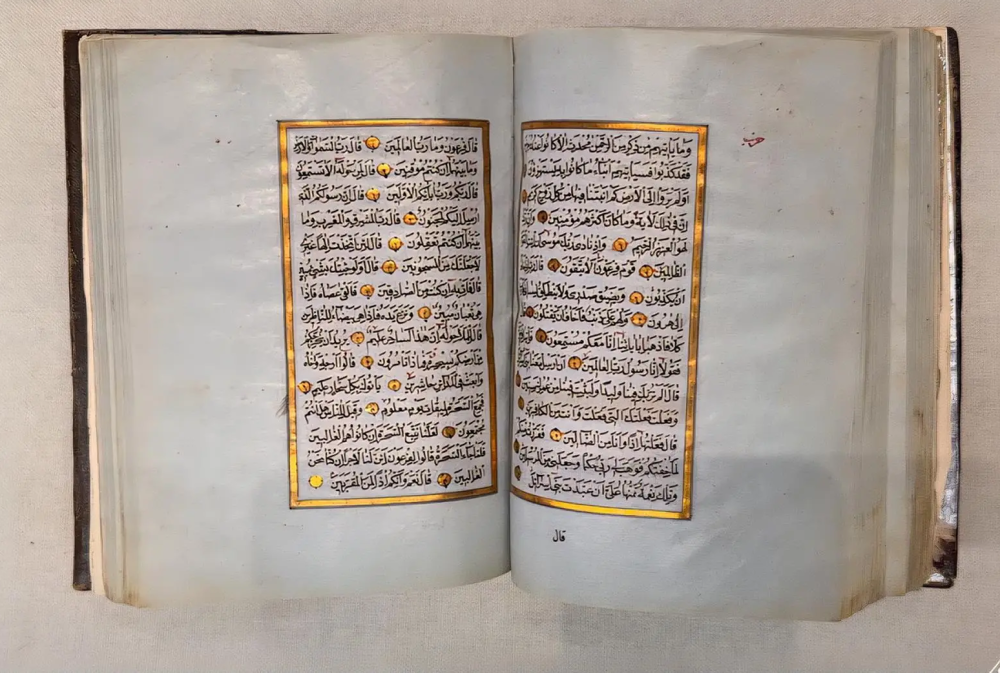 وما ياتيهم من ذكر من الرحمن محدث الا كانوا عنه
فقد كذبوا فسياتيهم انباء ما كانوا به يستهزؤن
اولم يروا الى الارض كم انبتنا فيها من كل زوج كريم
ان في ذلك لاية وما كان اكثرهم مؤمنين
لهو العزيز الرحيم واذ نادى ربك موسى ان ائت
الظالمين قوم فرعون الا يتقون قال رب
ان يكذبون ويضيق صدري ولا ينطلق لساني
الى هرون ولهم علي ذنب فاخاف ان يقتلون
كلا فاذهبا باياتنا انا معكم مستمعون
فقولا انا رسول رب العالمين ان ارسل معنا
قال الم نربك فينا وليدا ولبثت فينا من عمرك سنين
وفعلت فعلتك التي فعلت وانت من الكافرين
قال فعلتها اذا وانا من الضالين ففررت منكم
لما خفتكم فوهب لي ربي حكما وجعلني من المرسلين
وتلك نعمة تمنها علي ان عبدت بني اسرائيل
قال
قال فرعون وما رب العالمين قال رب السموات والارض
وما بينهما ان كنتم موقنين قال لمن حوله الا تستمعون
قال ربكم ورب ابائكم الاولين قال ان رسولكم الذي
ارسل اليكم لمجنون قال رب المشرق والمغرب وما
بينهما ان كنتم تعقلون قال لئن اتخذت الها غيري
لاجعلنك من المسجونين قال اولو جئتك بشيء مبين
قال فات به ان كنت من الصادقين فالقى عصاه فاذا
هي ثعبان مبين ونزع يده فاذا هي بيضاء للناظرين
قال للملا حوله ان هذا لساحر عليم يريد ان يخرجكم
من ارضكم بسحره فماذا تامرون قالوا ارجه واخاه
وابعث في المدائن حاشرين ياتوك بكل سحار عليم
فجمع السحرة لميقات يوم معلوم وقيل للناس هل انتم
مجتمعون لعلنا نتبع السحرة ان كانوا هم الغالبين
فلما جاء السحرة قالوا لفرعون ائن لنا لاجرا ان كنا نحن
الغالبين قال نعم وانكم اذا لمن المقربين